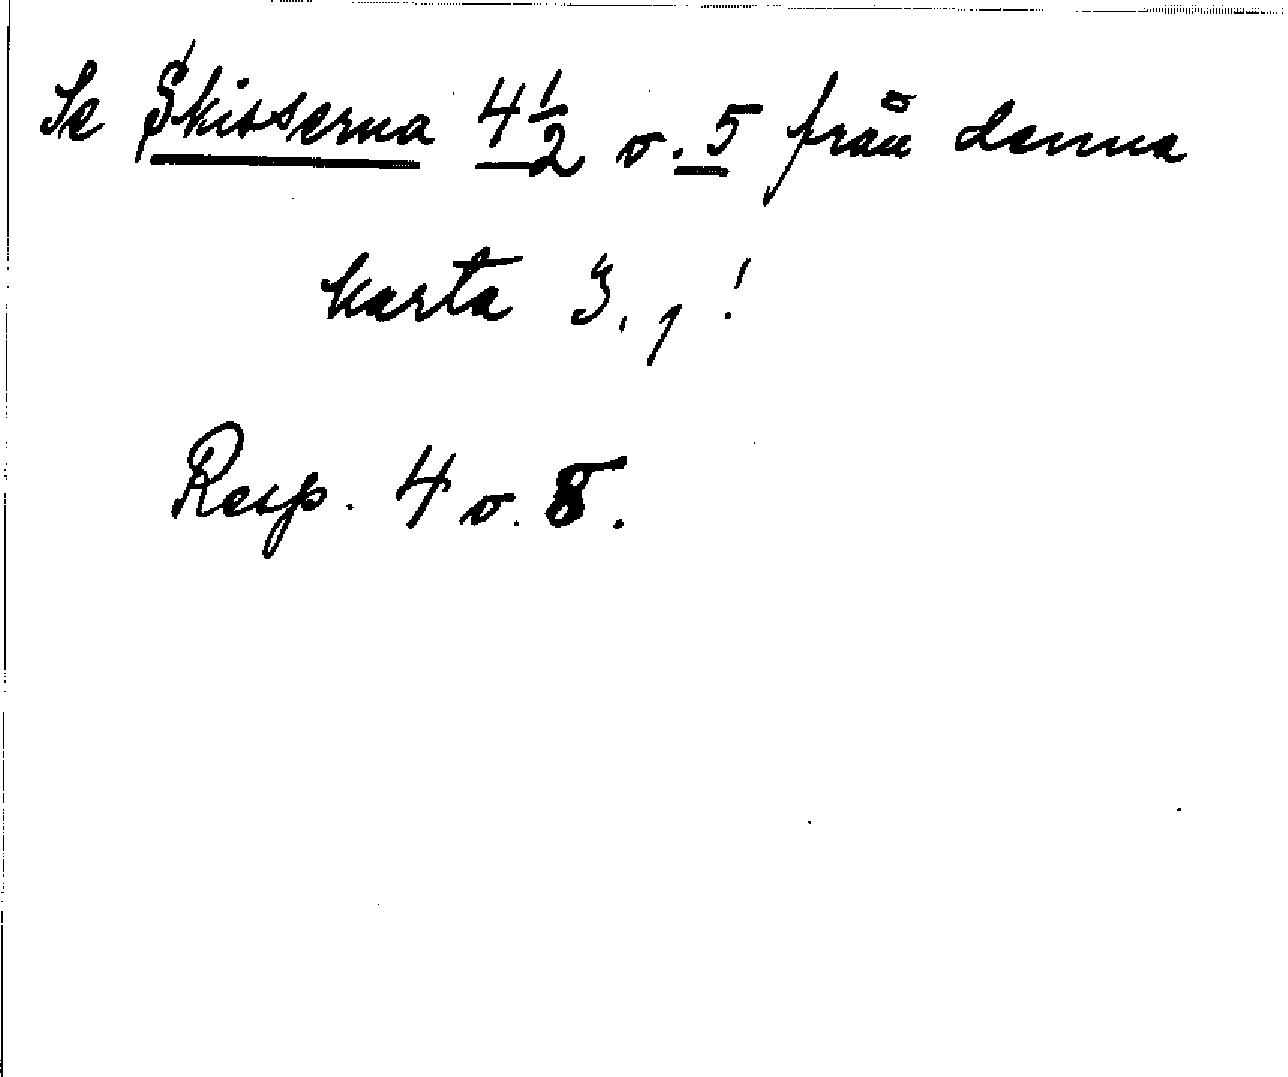 Se Skisserna 4½ o. 5 från denna
karta 3, 1!
Resp. 4 o. 5.